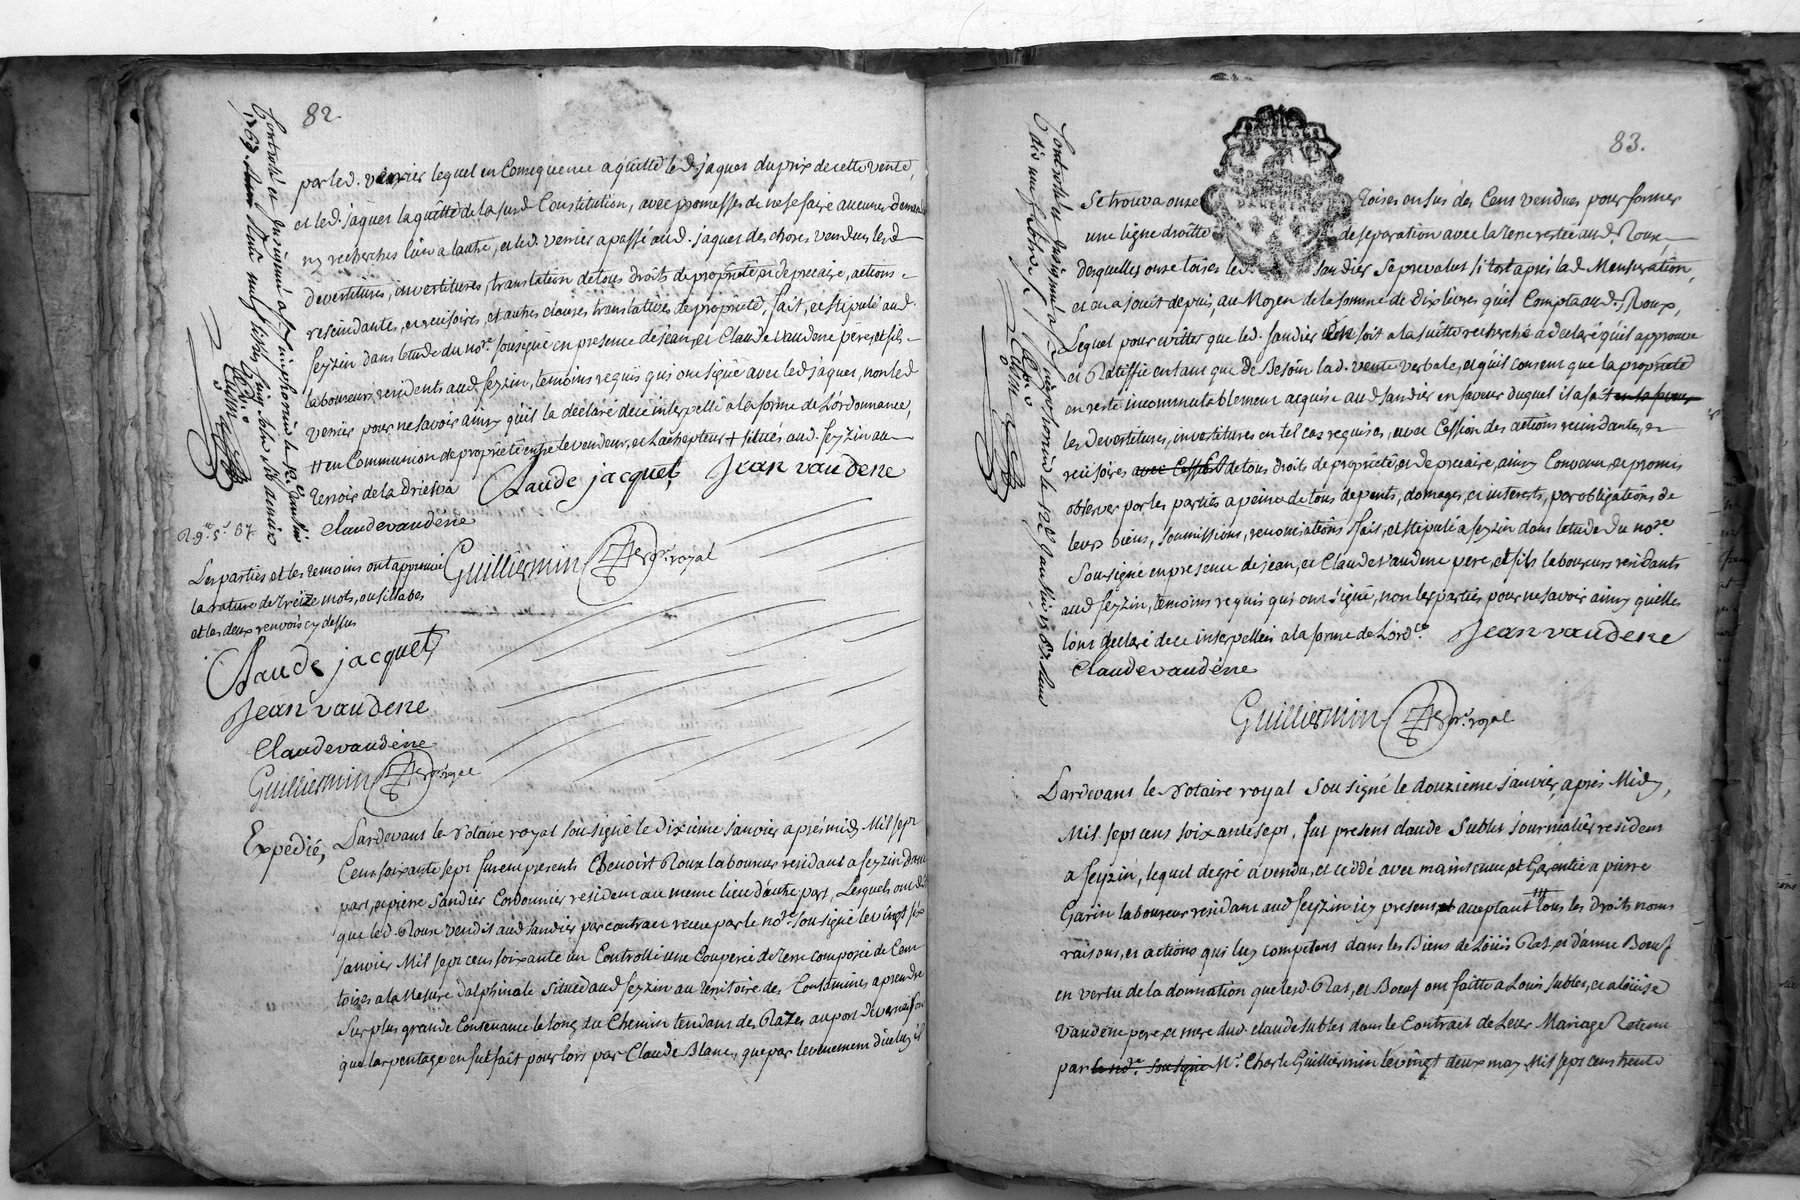 82.
par led. verrier lequel en Consequence a quitté led. jaques du prix de cette vente,
et led. jaques la quitté de la susd. Constitution, avec promesses de ne se faire aucunes demandes
ny recherches l'un a l'autre, et led. verrier a passé aud. jaques des choses vendues les d
devestitures, investitures, translation de tous droits de proprieté, et de precaire, actions
rescindantes, rescisoires, et autres clauses translatives de proprieté, fait, et stipulé aud.
seyzin dans letude du nore. sousigné en presence de jean, et Claude vaudene pere, et fils
laboureurs residents aud. seyzin, temoins requis qui ont signé avec led jaques, non led
verrier pour ne savoir ainsy qu'il la declaré de ce interpellé a la forme de Lordonnance,
en Communion de proprieté entre le vendeur, et Lachepteur + situés aud. seyzin au
terroir de la
Claude jacquet Jean vaudene
Claudevaudene
Guilliermin nore. royal
R. 9.s 5.d 67
Les parties et les temoins ont approuvé
la rature de treize mots, ou sillabes
et les deux renvois cy dessus
Claude jacquet
Jean vaudene
Claudevaudene
Guilliermin nore. royal
Controllé et insinué a st simphorien le 12e janvier
1767.
Expedié,
Pardevant le Notaire royal sousigné le dixieme janvier apresmidy Mil sept
Cent soixante sept furent presents Benoist Roux laboureur residant a seyzin d'une
part, et pierre sandier Cordonnier resident au meme lieu d'autre part, Lesquels ont dit
que led. Roux vendit aud sandier par contract receu par le nore. sousigné le vingt six
janvier Mil sept cent soixante un Controllé une Coupeé de terre composeé de Cent
toises a la Mesure dalphinale situeé aud seyzin au territoire des Contamines a prendre
sur plus grande Contenance le long du Chemin tendant des Razes au port de vernaison
que larpentage en fut fait pour lors par Claude Blanc, que par levenement d'icelui il
83.
Se trouva onze toises en sus des Cent vendues pour former
une ligne droitte de separation avec la terre restée aud. Roux,
desquelles onze toises led. sandier se prevalut si tost aprés lad. Mensuration,
et en a jouit depuis, au Moyen de la somme de dix livres qu'il Compta aud. Roux,
Lequel pour eviter que led. sandier en soit a la suitte recherché a declaré qu'il approuve
et Ratiffie en tant que de Besoin lad. vente verbale, et qu'il consent que la proprieté
en reste incommutablement acquise aud sandier en faveur duquel il a fait en sa faveur
les devestitures, investitures en tel cas requises, avec Cession des actions rescindantes, et
rescisoires de tous droits de proprieté, et de precaire, ainsy Convenu, et promis
observer par les parties a peine de tous depents, domages, et interests, par obligations de
leurs biens, soumissions, renonciations, fait, et stipulé a seyzin dans letude du nore.
Sousigné en presence de jean, et Claude vaudene pere, et fils laboureurs residants
aud seyzin, temoins requis qui ont signé, non les parties pour ne savoir ainsy quelles
lont declaré de ce interpelleés a la forme de Lordce. Jean vaudene
Claudevaudene
Guilliermin nore. royal
Controllé et insinué a st simphorien le 12e janvier 1767.
Pardevant le Notaire royal sousigné le douzieme janvier, aprés Midy,
Mil sept cent soixante sept, fut present claude sublet journalier resident
a seyzin, lequel de gré a vendu, et ceddé avec maintenue et Garentie a pierre
Garin laboureur residant aud seyzin icy present, et acceptant tous les droits noms
raisons, et actions qui luy competent dans les Biens de Loüis Rat, et d'anne Boeuf
en vertu de la donnation que lesd. Rat, et Boeuf ont faitte a Louis sublet, et a loüise
vaudene pere, et mere dud. claude sublet dans le Contract de Leur Mariage Retenu
par le nore. sousigné Mr. Charle Guilliermin le vingt deux may Mil sept cent trente